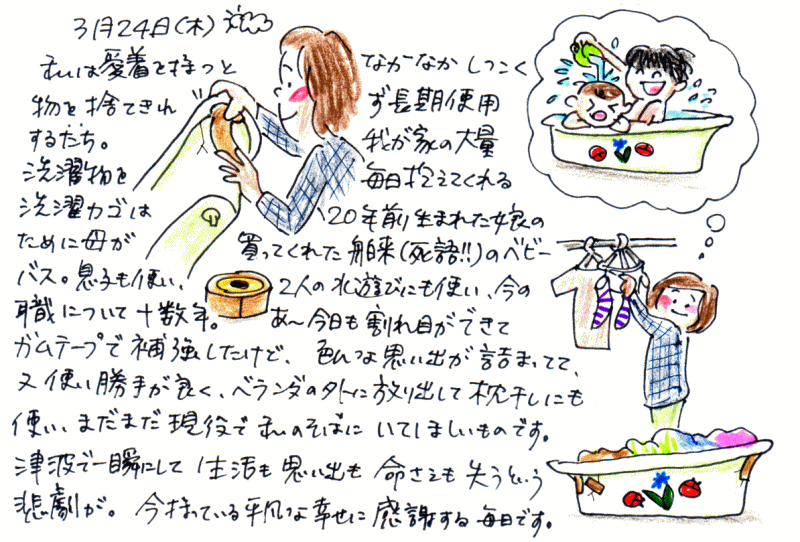 3月24日(木)
私は愛着を持つと なかなかしつこく
物を捨てきれ ず長期使用
するたち。 我が家の大量
洗濯物を 毎日抱えてくれる
洗濯カゴは 20年前生まれた娘の
ために母が 買ってくれた舶来(死語!!)のベビー
バス。息子も使い、 2人の水遊びにも使い、今の
職について十数年。 あ〜今日も割れ目ができて
ガムテープで補強したけど、色んな思い出が詰まってて、
又使い勝手が良く、ベランダの外に放り出して枕干しにも
使い、まだまだ現役で私のそばにいてほしいものです。
津波で一瞬にして生活も思い出も命さえも失うという
悲劇が。今持っている平凡な幸せに感謝する毎日です。